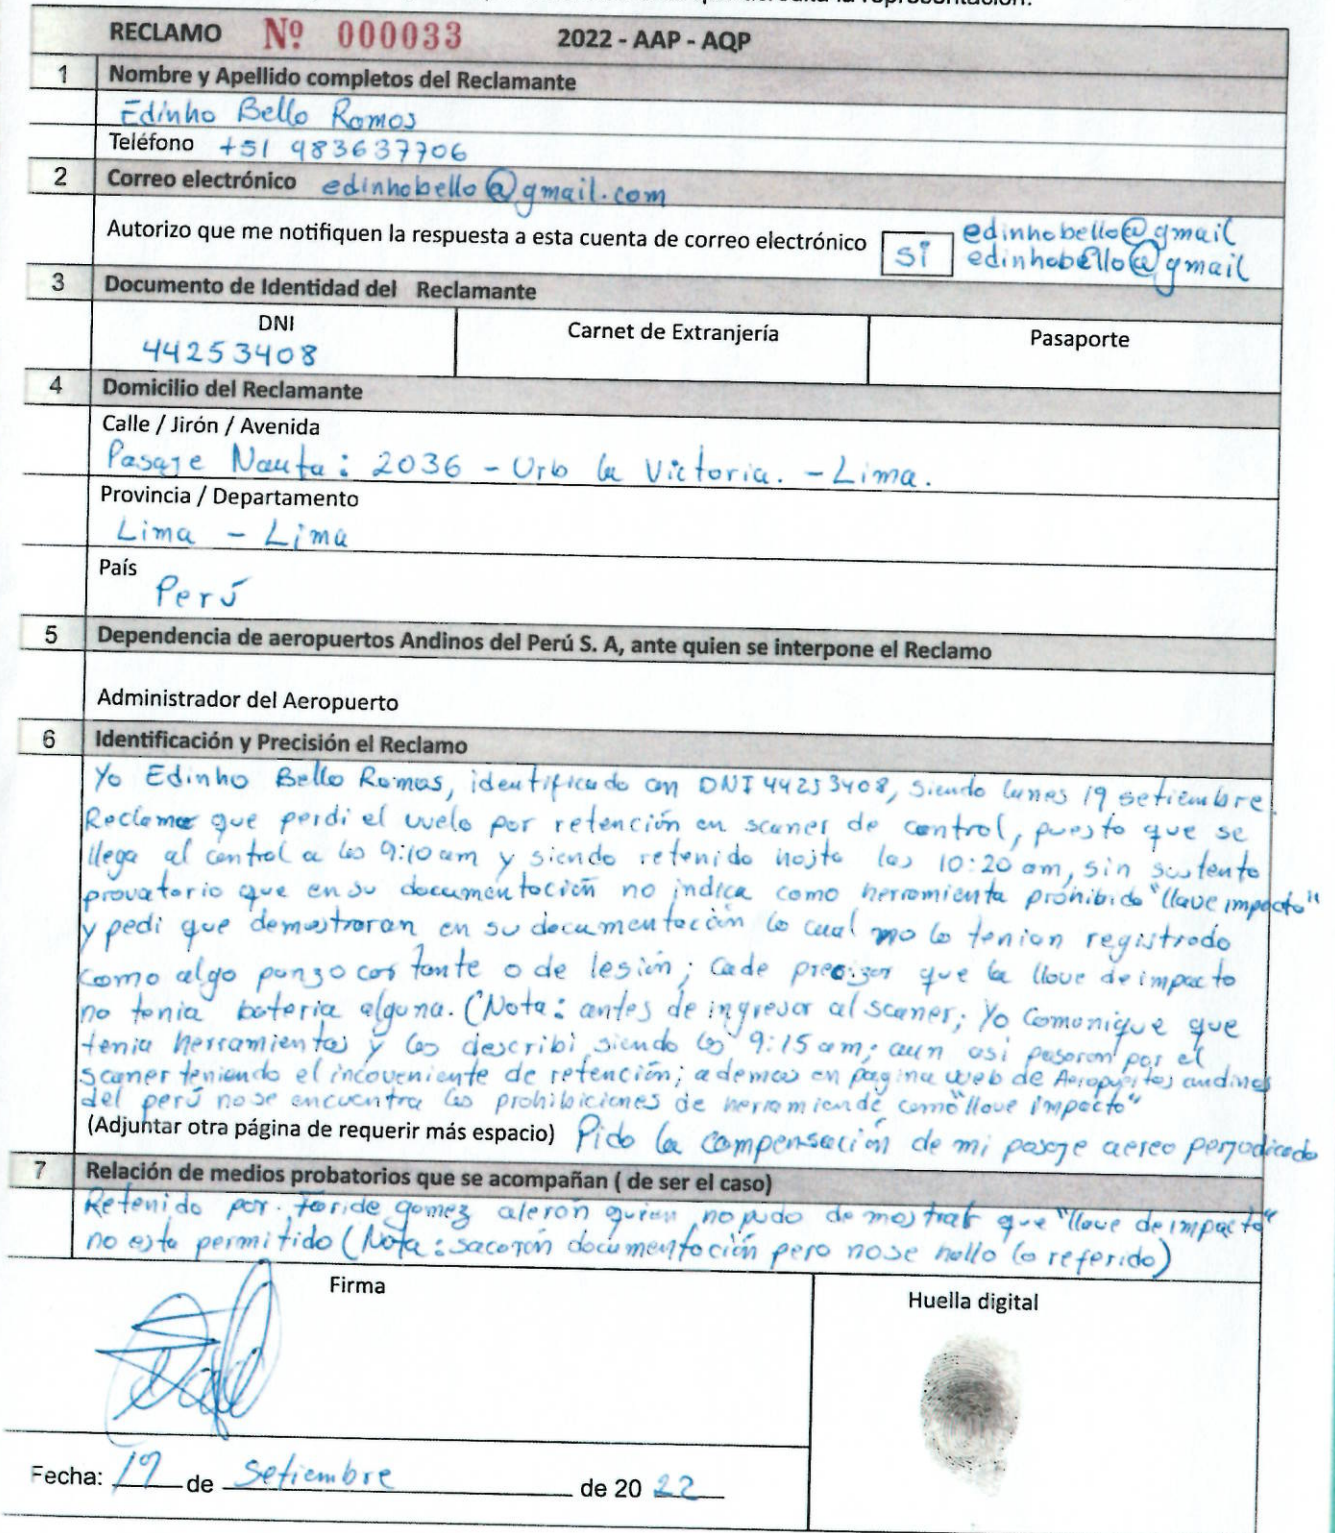 RECLAMO Nº 000033 2022 - AAP - AQP
1 Nombre y Apellido completos del Reclamante
Edinho Bello Ramos
Teléfono +51 983637706
2 Correo electrónico edinhobello@gmail.com
Autorizo que me notifiquen la respuesta a esta cuenta de correo electrónico si edinhobello@gmail
edinhobello@gmail
3 Documento de Identidad del Reclamante
DNI Carnet de Extranjería Pasaporte
44253408
4 Domicilio del Reclamante
Calle / Jirón / Avenida
Pasaje Nauta: 2036 - Urb la Victoria. - Lima.
Provincia / Departamento
Lima - Lima
País
Perú
5 Dependencia de aeropuertos Andinos del Perú S. A, ante quien se interpone el Reclamo
Administrador del Aeropuerto
6 Identificación y Precisión el Reclamo
Yo Edinho Bello Ramos, identificado con DNI 44253408, siendo lunes 19 setiembre.
Reclamo que perdi el vuelo por retención en scaner de control, puesto que se
llega al control a las 9:10 am y siendo retenido hasta las 10:20 am, sin sustento
provatorio que en su documentación no indica como herramienta prohibida "llave impacto"
y pedi que demostraran en su documentación lo cual no lo tenian registrado
como algo punzo cortante o de lesión; Cabe precizar que la llave de impacto
no tenia bateria alguna. (Nota: antes de ingresar al scaner; Yo Comonique que
tenia herramientas y las describi siendo las 9:15 am; aun asi pasaron por el
scaner teniendo el incoveniente de retención; ademas en pagina web de andinos
del perú no se encuentra las prohibiciones de como "llave impacto"
(Adjuntar otra página de requerir más espacio) Pido la compensación de mi pasaje aereo perjudicado
7 Relación de medios probatorios que se acompañan ( de ser el caso)
Retenido por. gomez quien no pudo demostrar que "llave de impacto"
no esta permitido (Nota: sacarón documentación pero no se hallo lo referido)
Firma Huella digital
Fecha: 19 de Setiembre de 2022